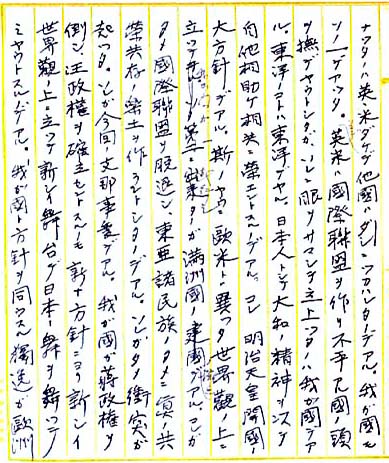 ナツタノハ英米ダケデ他国ハ
ソノ一ツデアツタ。英米ハ國際聯盟ヲ作リ不平ナ国ノ頭
ヲ撫デヤウトシタガ、ソレニ眼ヲサマシテ立上ツタノハ我ガ國デア
ル。東洋ノコトハ東洋デヤル。日本人トシテ大和ノ精神ヲ以テ
自他相助ケ相共ニ榮エントスルノデアル。コレ明治天皇開國ノ
大方針デアル。斯ノヤウニ歐米ト異ツタ世界觀ノ上ニ
立ツテ ソノ第一ニ出来タノガ満洲國ノ建國デアル。コレガ
タメ國際聯盟ヲ脱退シ、東亜諸民族ノタメニ真ノ共
榮共存ノ樂土ヲ作ラントシタノデアル。ソレガタメ衝突ガ
起ツタ。ソレガ今回ノ支那事変デアル。我ガ國ガ蒋政権ヲ
倒シ汪政權ヲ確立セントスルモ新ナ方針ニヨリ新シイ
世界觀ノ上ニ立ツテ新シイ舞台デ日本ノ舞ヲ舞ツテ
ミヤウトスルノデアル。我ガ國ト方針ヲ同ウスル獨逸ガ歐洲